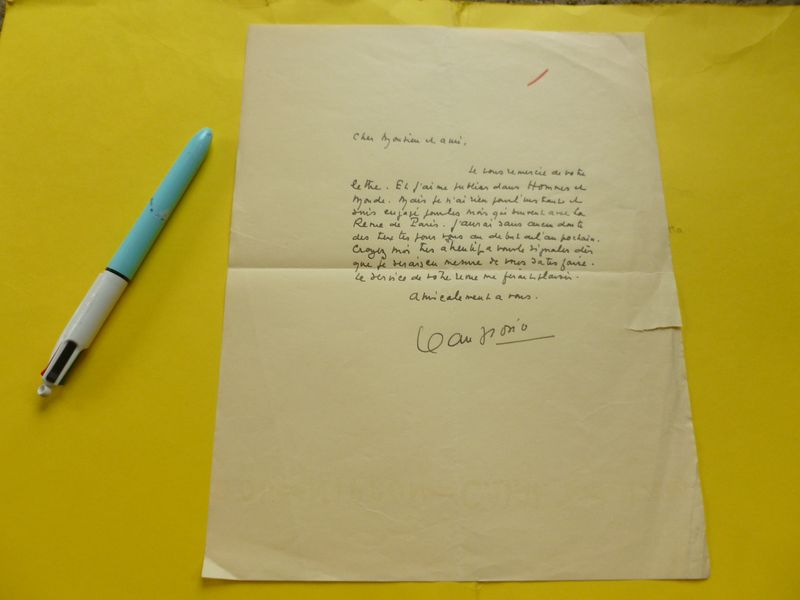 Cher Monsieur et ami,
Je vous remercie de votre
lettre. Et j'aime publier dans Hommes et
Monde. Mais je n'ai rien pour l'instant et
suis engagé pour les mois qui suivent avec la
Revue de Paris. J'aurai sans aucun doute
des textes pour vous au début de l'an prochain.
Croyez moi très attentif a vous le signaler dès
que je serais en mesure de vous satisfaire.
Le service de votre revue me ferait plaisir.
Amicalement a vous.
Jean Giono